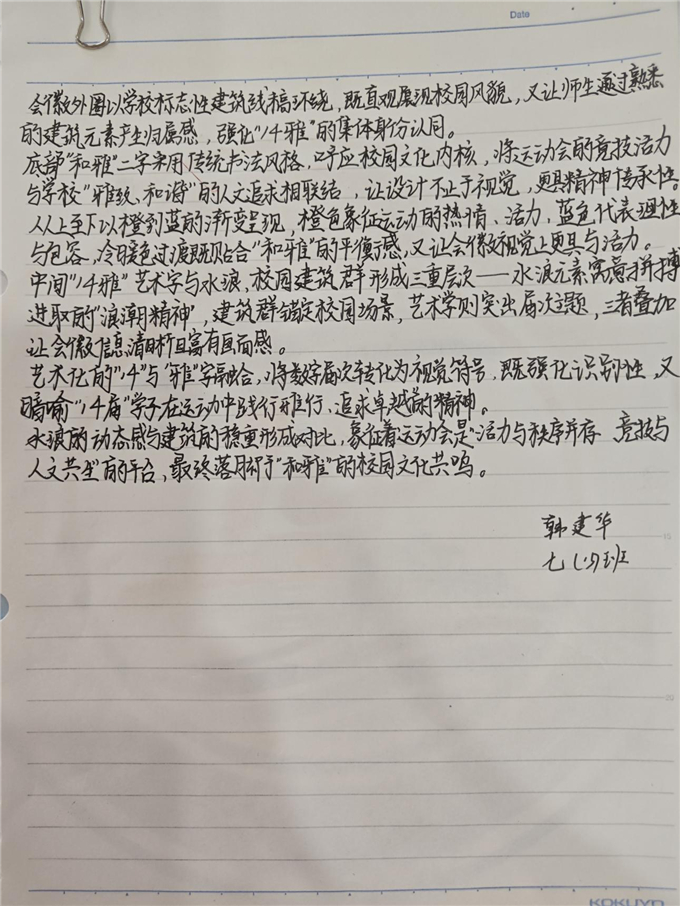 Date
会徽外圈以学校标志性建筑线稿环绕，既直观展现校园风貌，又让师生通过熟悉
的建筑元素产生归属感，强化"14雅"的集体身份认同。
底部"和雅"二字采用传统书法风格，呼应校园文化内核，将运动会的竞技活力
与学校"雅致、和谐"的人文追求相联结，让设计不止于视觉，更具精神传承性。
从上至下以橙到蓝的渐变呈现，橙色象征运动的热情、活力，蓝色代表理性
与包容，冷暖色过渡既贴合"和雅"的平衡感，又让会徽视觉上更具与活力。
中间"14雅"艺术字与水浪、校园建筑群形成三重层次——水浪元素寓意拼搏
进取的"浪潮精神"，建筑群锚定校园场景，艺术学则突出届次主题，三者叠加
让会徽信息清晰且富有画面感。
艺术化的"14"与"雅"字融合，将数字届次转化为视觉符号，既强化识别性，又
暗喻"14届"学子在运动中践行雅行、追求卓越的精神。
水浪的动态感与建筑的稳重形成对比，象征着运动会是"活力与秩序并存 竞技与
人文共生"的平台，最终落脚于"和雅"的校园文化共鸣。
韩建华
七班
15
20
KOKUYO